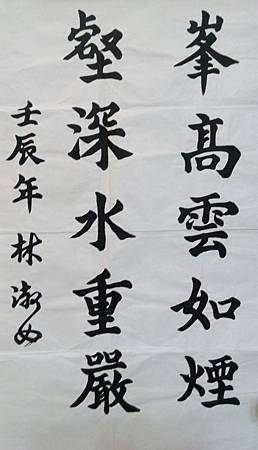 峯髙雲如煙
壑深水重嚴
壬辰年林淑如